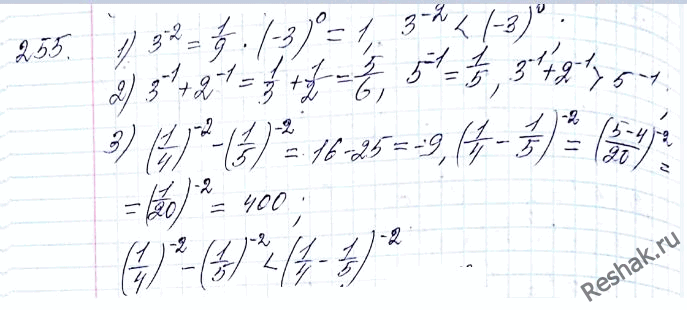 255. 1) 3⁻² = 1/9 · (-3)⁰ = 1, 3⁻² < (-3)⁰.
2) 3⁻¹ + 2⁻¹ = 1/3 + 1/2 = 5/6, 5⁻¹ = 1/5, 3⁻¹ + 2⁻¹ > 5⁻¹,
3) (1/4)⁻² - (1/5)⁻² = 16 - 25 = -9, (1/4 - 1/5)⁻² = ((5-4)/20)⁻² =
= (1/20)⁻² = 400;
(1/4)⁻² - (1/5)⁻² < (1/4 - 1/5)⁻²
Reshak.ru